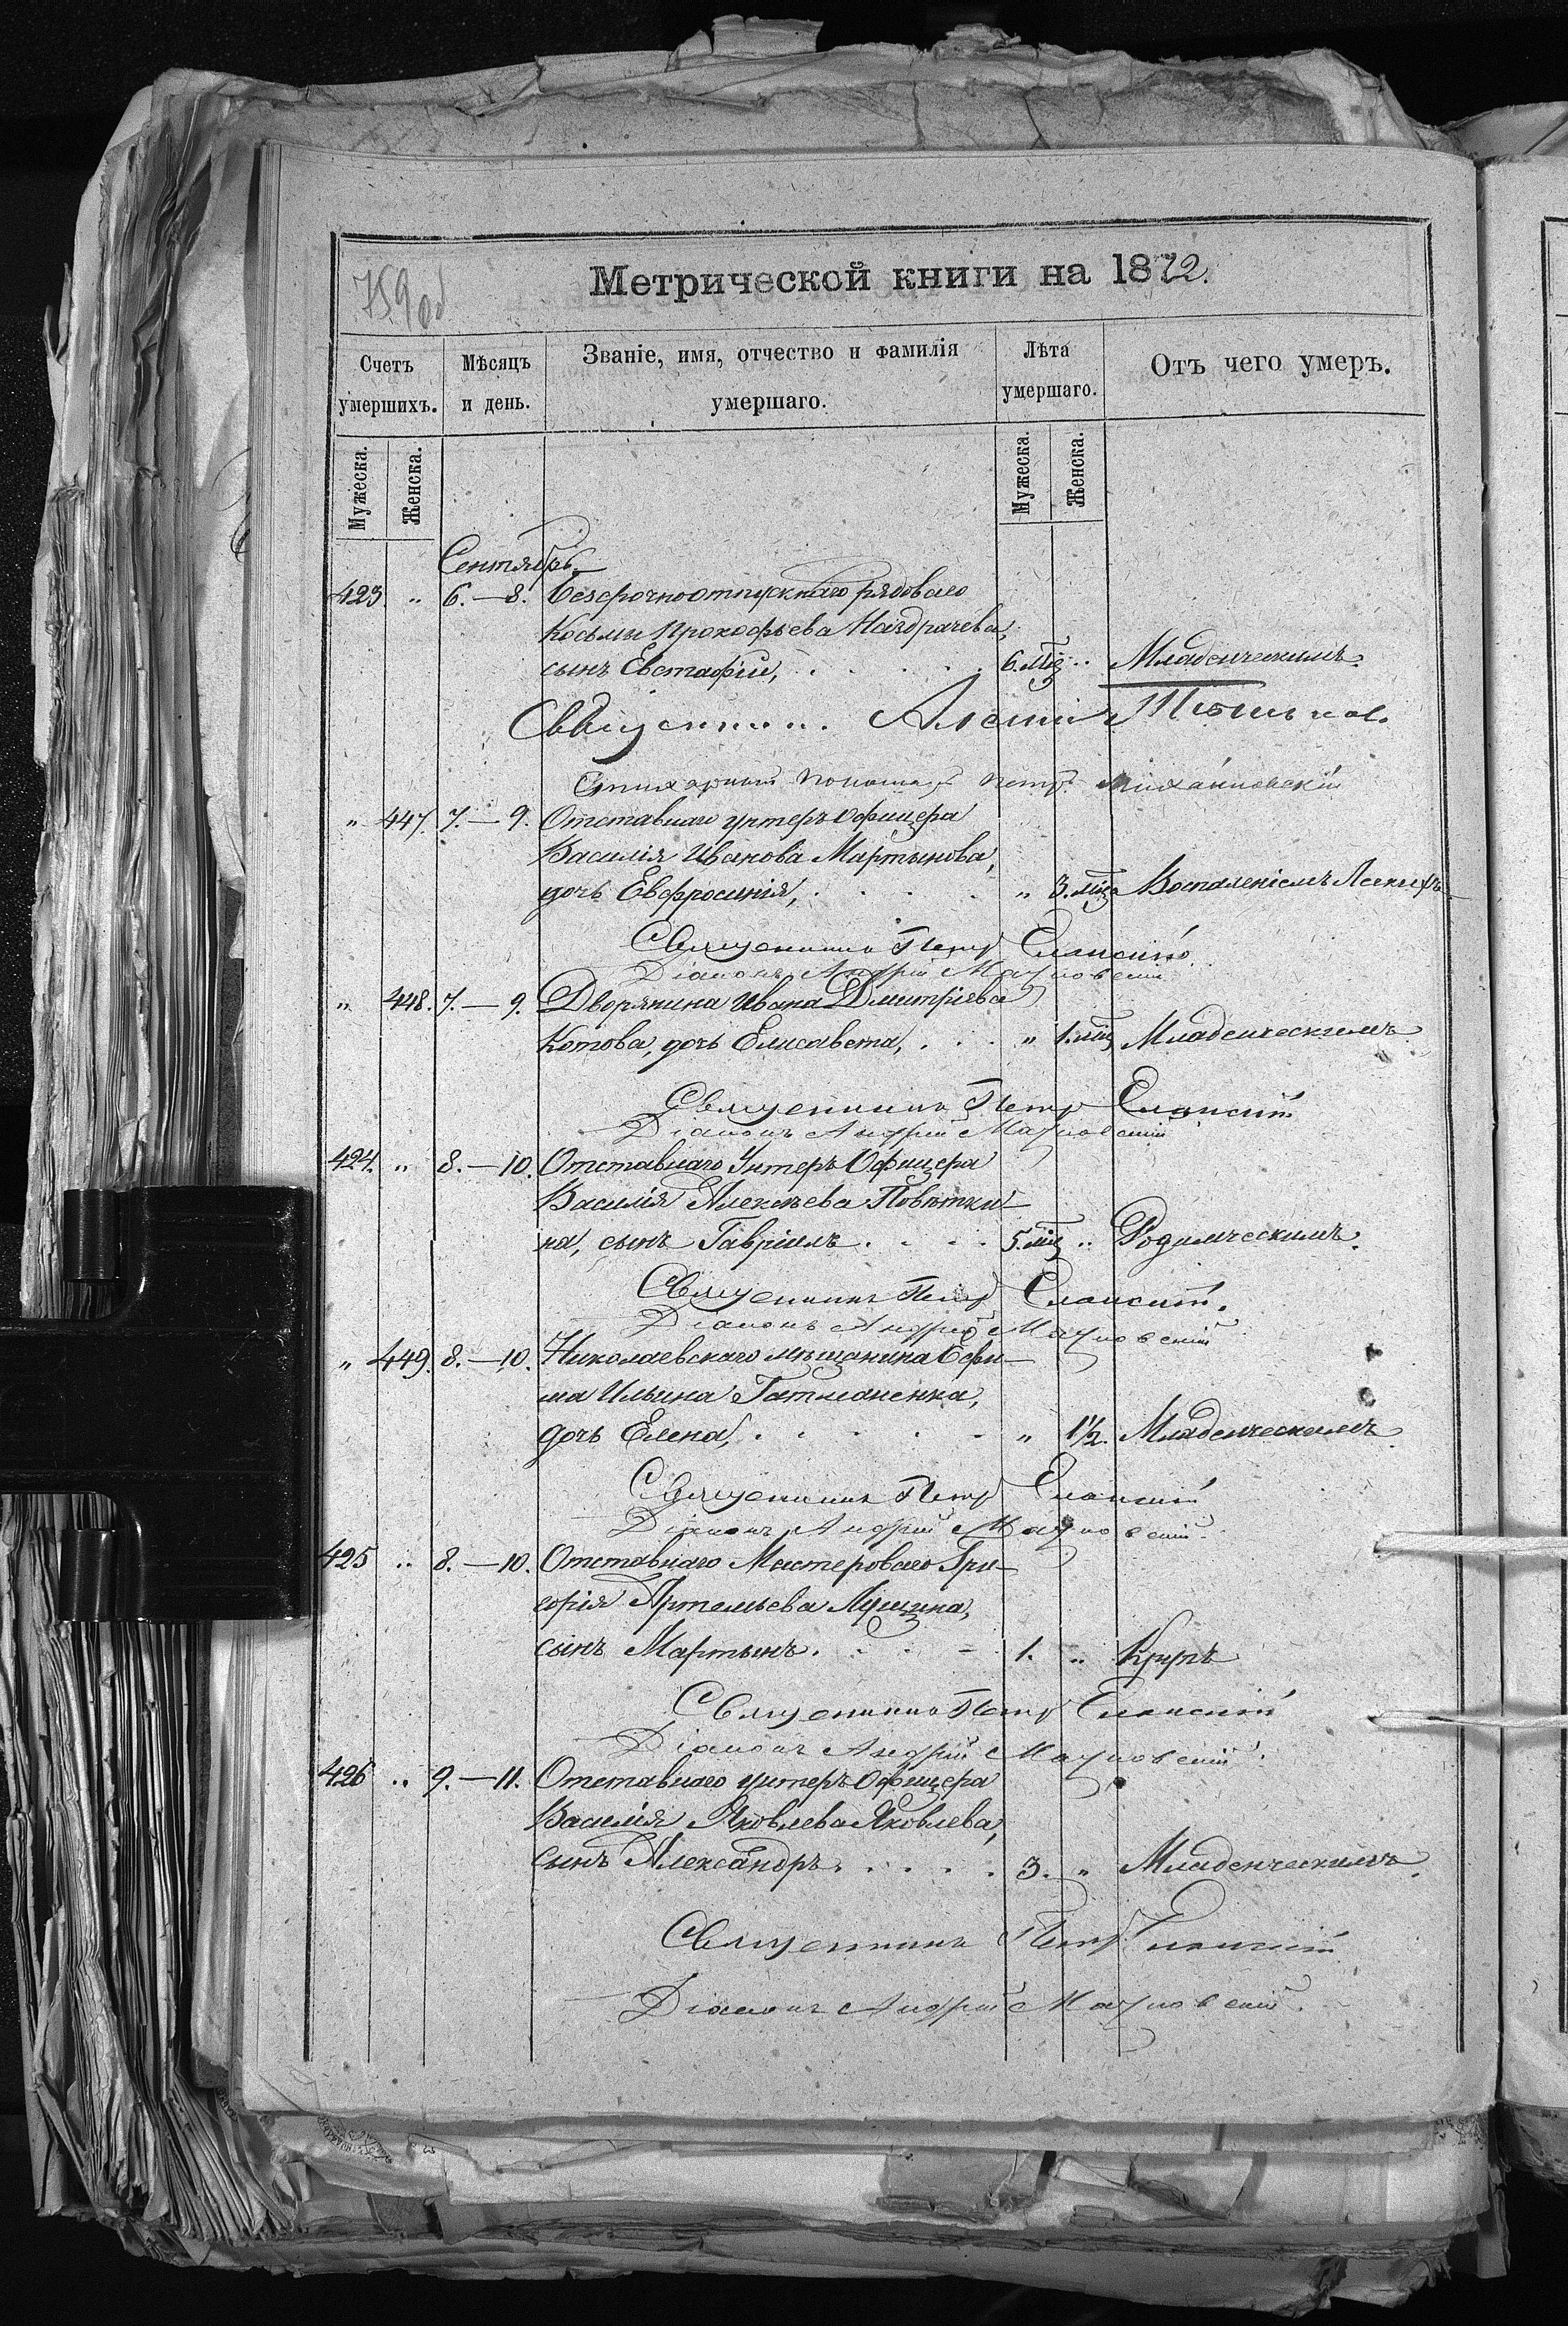 759 об
Метрической книги на 1872.
Счетъ умершихъ.
Мѣсяцъ и день.
Званіе, имя, отчество и фамилія умершаго.
Лѣта умершаго.
Отъ чего умеръ.
Мужеска. Женска. Мужеска. Женска.
Сентябрь
423 „ 6.—8. Безсрочноотпускнаго рядоваго
Косьмы Прокофьева Наздрачева,
сынъ Евстафій, 6. мѣс „ Младенческимъ.
Священник Алексій
Стихарный Пономарь Петръ Михайловскій
„ 447. 7.—9. Отставнаго унтеръ офицера
Василія Иванова Мартынова,
дочь Евфросинія, „ 3. мѣс Воспаленіемъ Легкихъ
Священникъ Петр Еланскій
Діаконъ Андрей
„ 448. 7.—9. Дворянина Ивана Дмитріева
Котова, дочь Елисавета, „ 1. мѣс Младенческимъ
Священникъ Петр Еланскій
Діаконъ Андрей
424. „ 8.—10. Отставнаго Унтеръ Офицера
Василія Алексѣева Повѣтки-
на, сынъ Гавріилъ 5. мѣс „ Родимческимъ.
Священникъ Петр Еланскій.
Діаконъ Андрей
„ 449. 8.—10. Николаевскаго мѣщанина Ефи-
ма Ильина Гатманенка,
дочь Елена, „ 1½. Младенческимъ
Священникъ Петр Еланскій
Діаконъ Андрей
425 „ 8.—10. Отставнаго Мастероваго Гри-
горія Артемьева Лущина,
сынъ Мартынъ. 1. „ Крупъ
Священникъ Петр Еланскій
Діаконъ Андрей
426 „ 9.—11. Отставнаго унтеръ Офицера
Василія Яковлева Яковлева,
сынъ Александръ 3. „ Младенческимъ.
Священникъ Петр Еланскій
Діаконъ Андрей